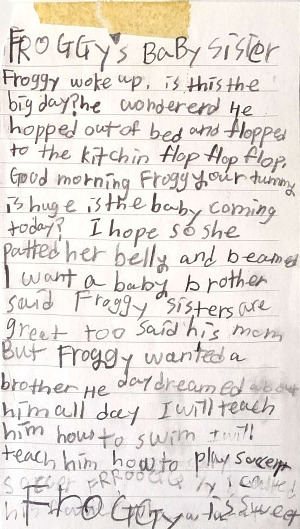 FROGGy's BaBy sister
Froggy woke up. is this the
big day? he wondererd He
hopped out of bed and flopped
to the kitchin flop flop flop.
Good morning Froggy your tummy
is huge is the baby coming
today? I hope so she
patted her belly and beamed
I want a baby brother
said Froggy sisters are
great too said his mom
But Froggy wanted a
brother He daydreamed about
him all day I will teach
him how to swim I will
teach him how to play soccer
soccer FRROOGGy
his FROGGy sweet